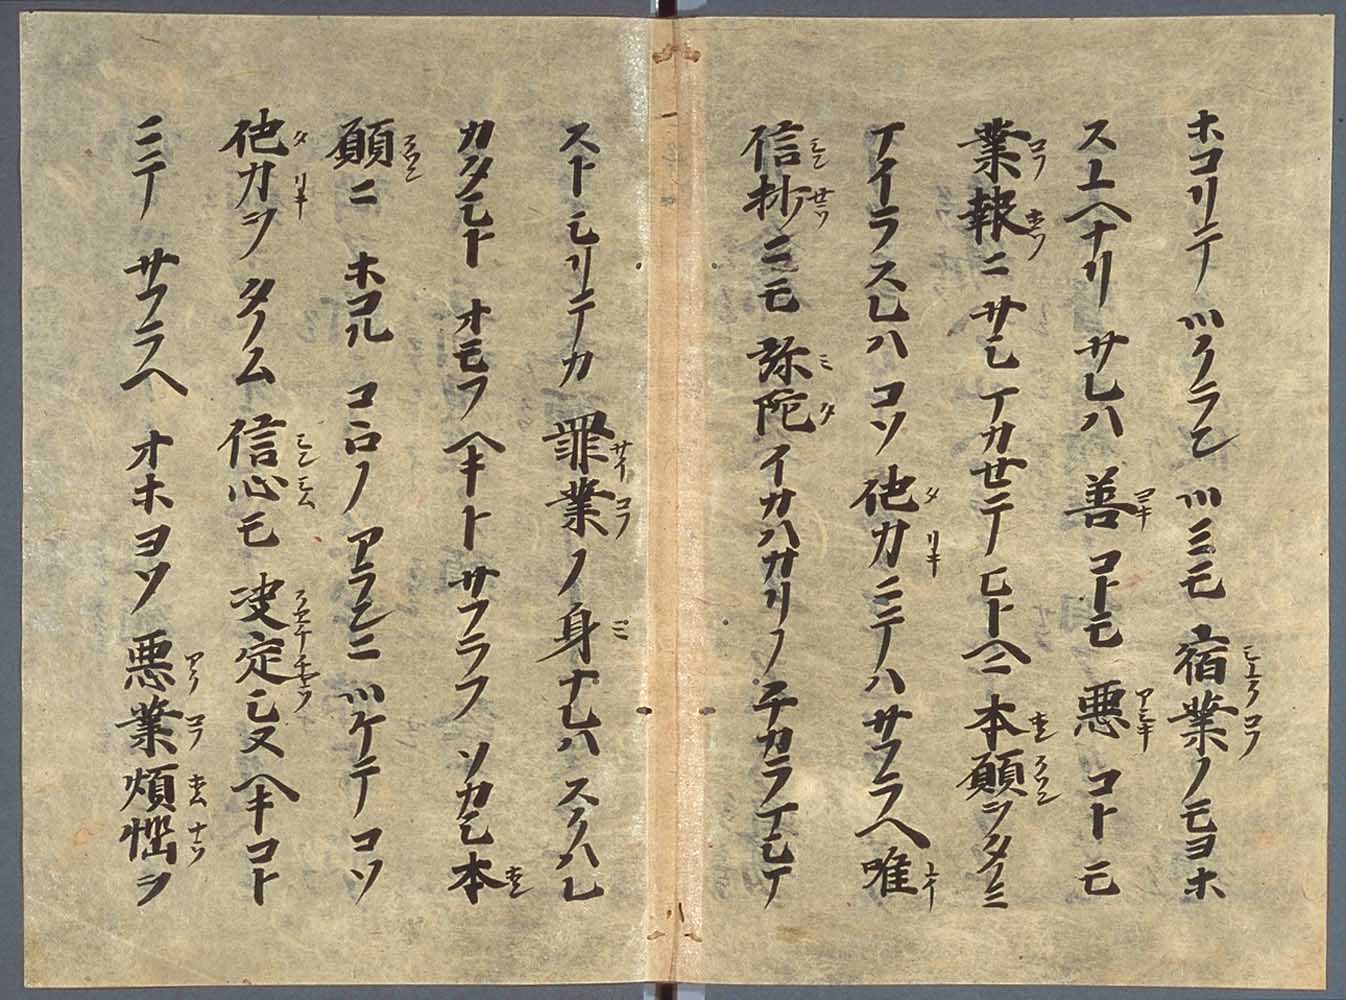 ホコリテツクラムツミモ宿業ノモヨホ
スユヘナリサレハ善コトモ悪コトモ
業報ニサシマカセテヒトヘニ本願ヲタノミ
マイラスレハコソ他力ニテハサフラヘ唯
信抄ニモ弥陀イカハカリノチカラマシマ
ストシリテカ罪業ノ身ナレハスクハレ
カタシトオモフヘキトサフラフソカシ本
願ニホコルコヽロノアランニツケテコソ
他力ヲタノム信心モ决定シヌヘキコト
ニテサフラヘオホヨソ悪業煩惱ヲ